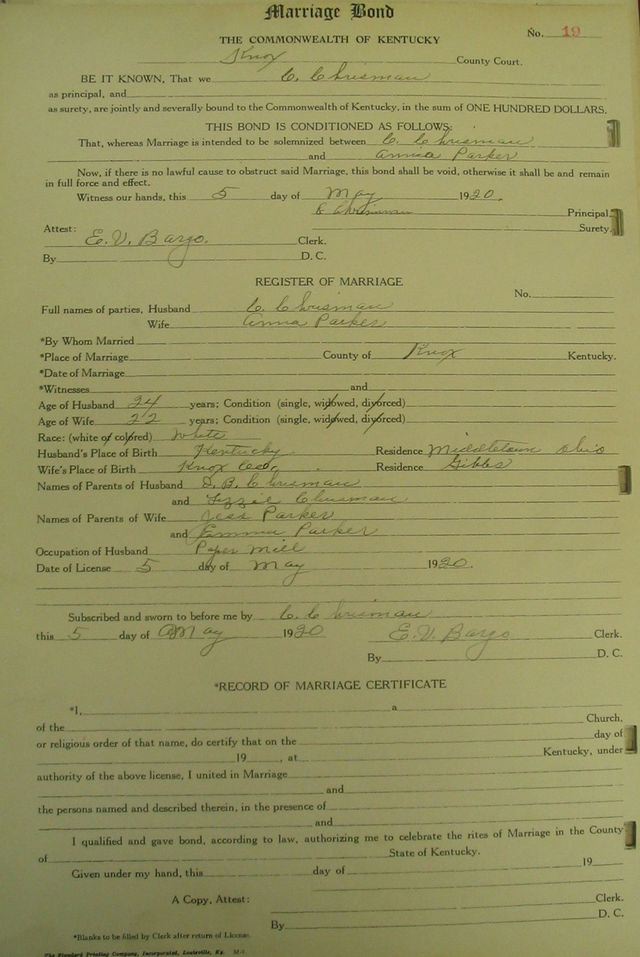 Marriage Bond
THE COMMONWEALTH OF KENTUCKY
No. 19
Knox County Court.
BE IT KNOWN, That we C. Chrisman
as principal, and
as surety, are jointly and severally bound to the Commonwealth of Kentucky, in the sum of ONE HUNDRED DOLLARS.
THIS BOND IS CONDITIONED AS FOLLOWS:
That, whereas Marriage is intended to be solemnized between C. Chrisman
and Parker
Now, if there is no lawful cause to obstruct said Marriage, this bond shall be void, otherwise it shall be and remain
in full force and effect.
Witness our hands, this 5 day of May 1920.
C Chrisman Principal
Surety.
Attest: E. V. Bargo. Clerk.
By D. C.
REGISTER OF MARRIAGE
No.
Full names of parties, Husband C. Chrisman
Wife Anna Parker
*By Whom Married
*Place of Marriage County of Knox Kentucky.
*Date of Marriage
*Witnesses and
Age of Husband 24 years; Condition (single, widowed, divorced)
Age of Wife 22 years; Condition (single, widowed, divorced)
Race: (white or colored) White
Husband's Place of Birth Kentucky Residence Middletown Ohio
Wife's Place of Birth Knox Co. Residence Gibbs
Names of Parents of Husband D. B. Chrisman
and Lizzie Chrisman
Names of Parents of Wife Jess Parker
and Emma Parker
Occupation of Husband Paper Mill
Date of License 5 day of May 1920.
Subscribed and sworn to before me by C. Chrisman
this 5 day of May 1920 E. V. Bargo Clerk.
By D. C.
*RECORD OF MARRIAGE CERTIFICATE
*I, a
of the Church,
or religious order of that name, do certify that on the day of
19 , at Kentucky, under
authority of the above license, I united in Marriage
and
the persons named and described therein, in the presence of
and
I qualified and gave bond, according to law, authorizing me to celebrate the rites of Marriage in the County
of State of Kentucky.
Given under my hand, this day of 19
A Copy, Attest: Clerk.
By D. C.
*Blanks to be filled by Clerk after return of License.
The Standard Printing Company, Incorporated, Louisville, Ky.